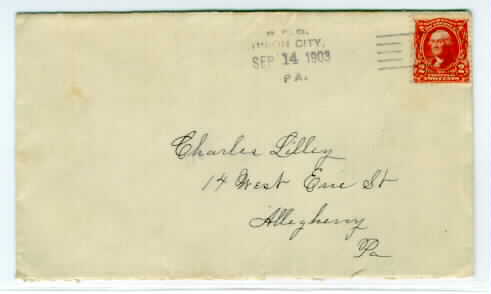 R.F.D.
UNION CITY,
SEP 14 1903
PA.
2 2
TWO CENTS
Charles Lilley
14 West Erie St
Allegheny
Pa